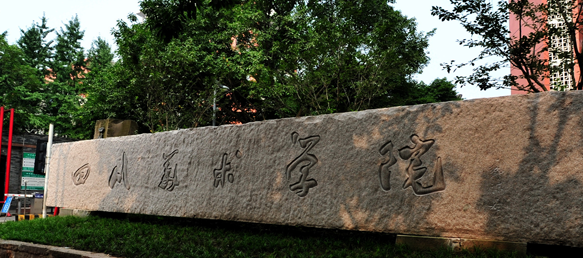 四川美术学院